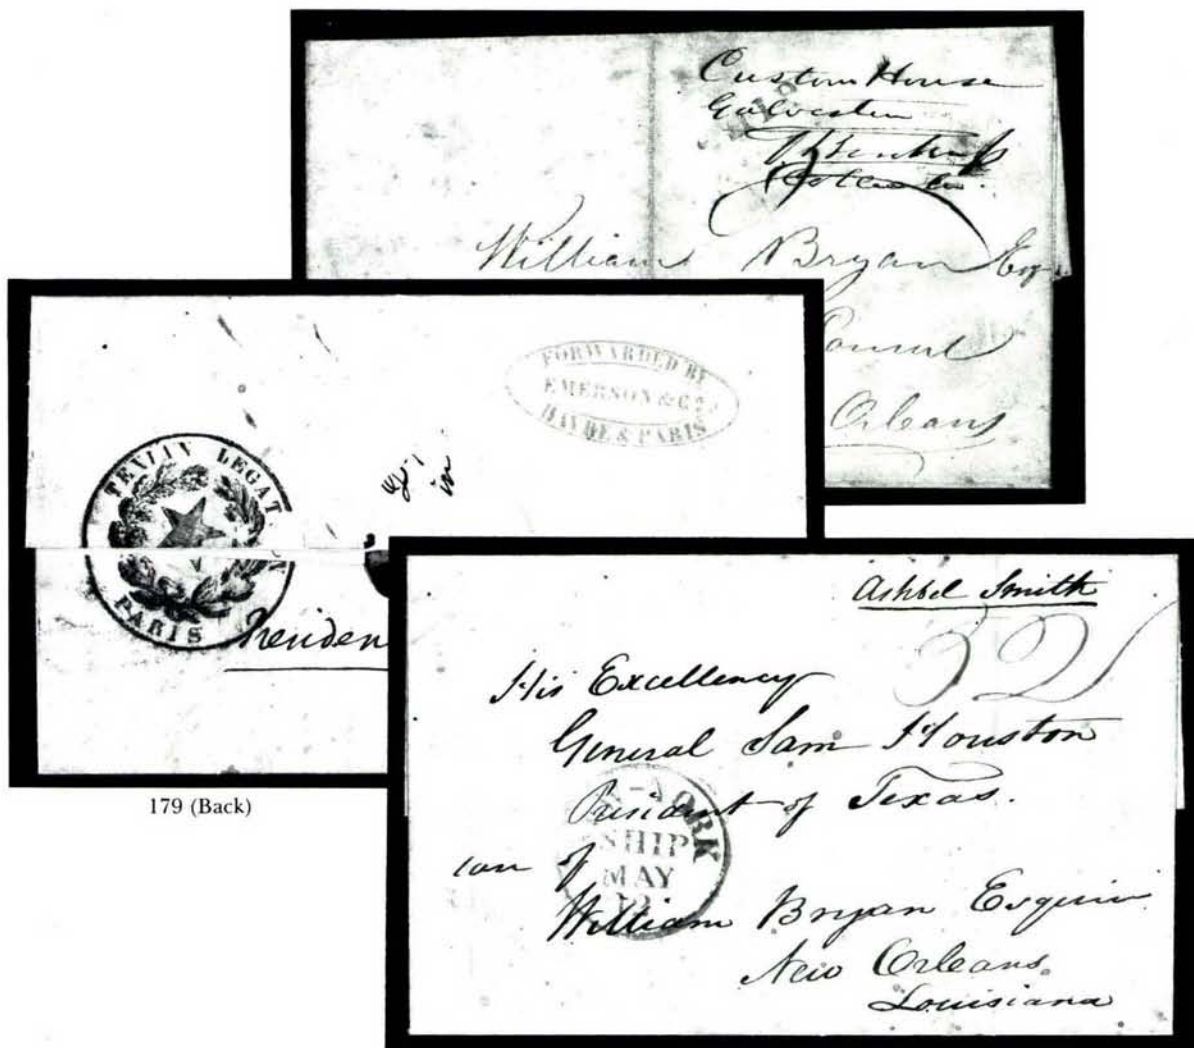 Custom House
Galveston
William Bryan Esq
Consul
Orleans
FORWARDED BY
EMERSON & Co
HAVRE & PARIS
TEXIAN LEGAT
PARIS
179 (Back)
Ashbel Smith
32
His Excellency
General Sam Houston
President of Texas.
YORK
SHIP
MAY
care of
William Bryan Esquire
New Orleans
Louisiana